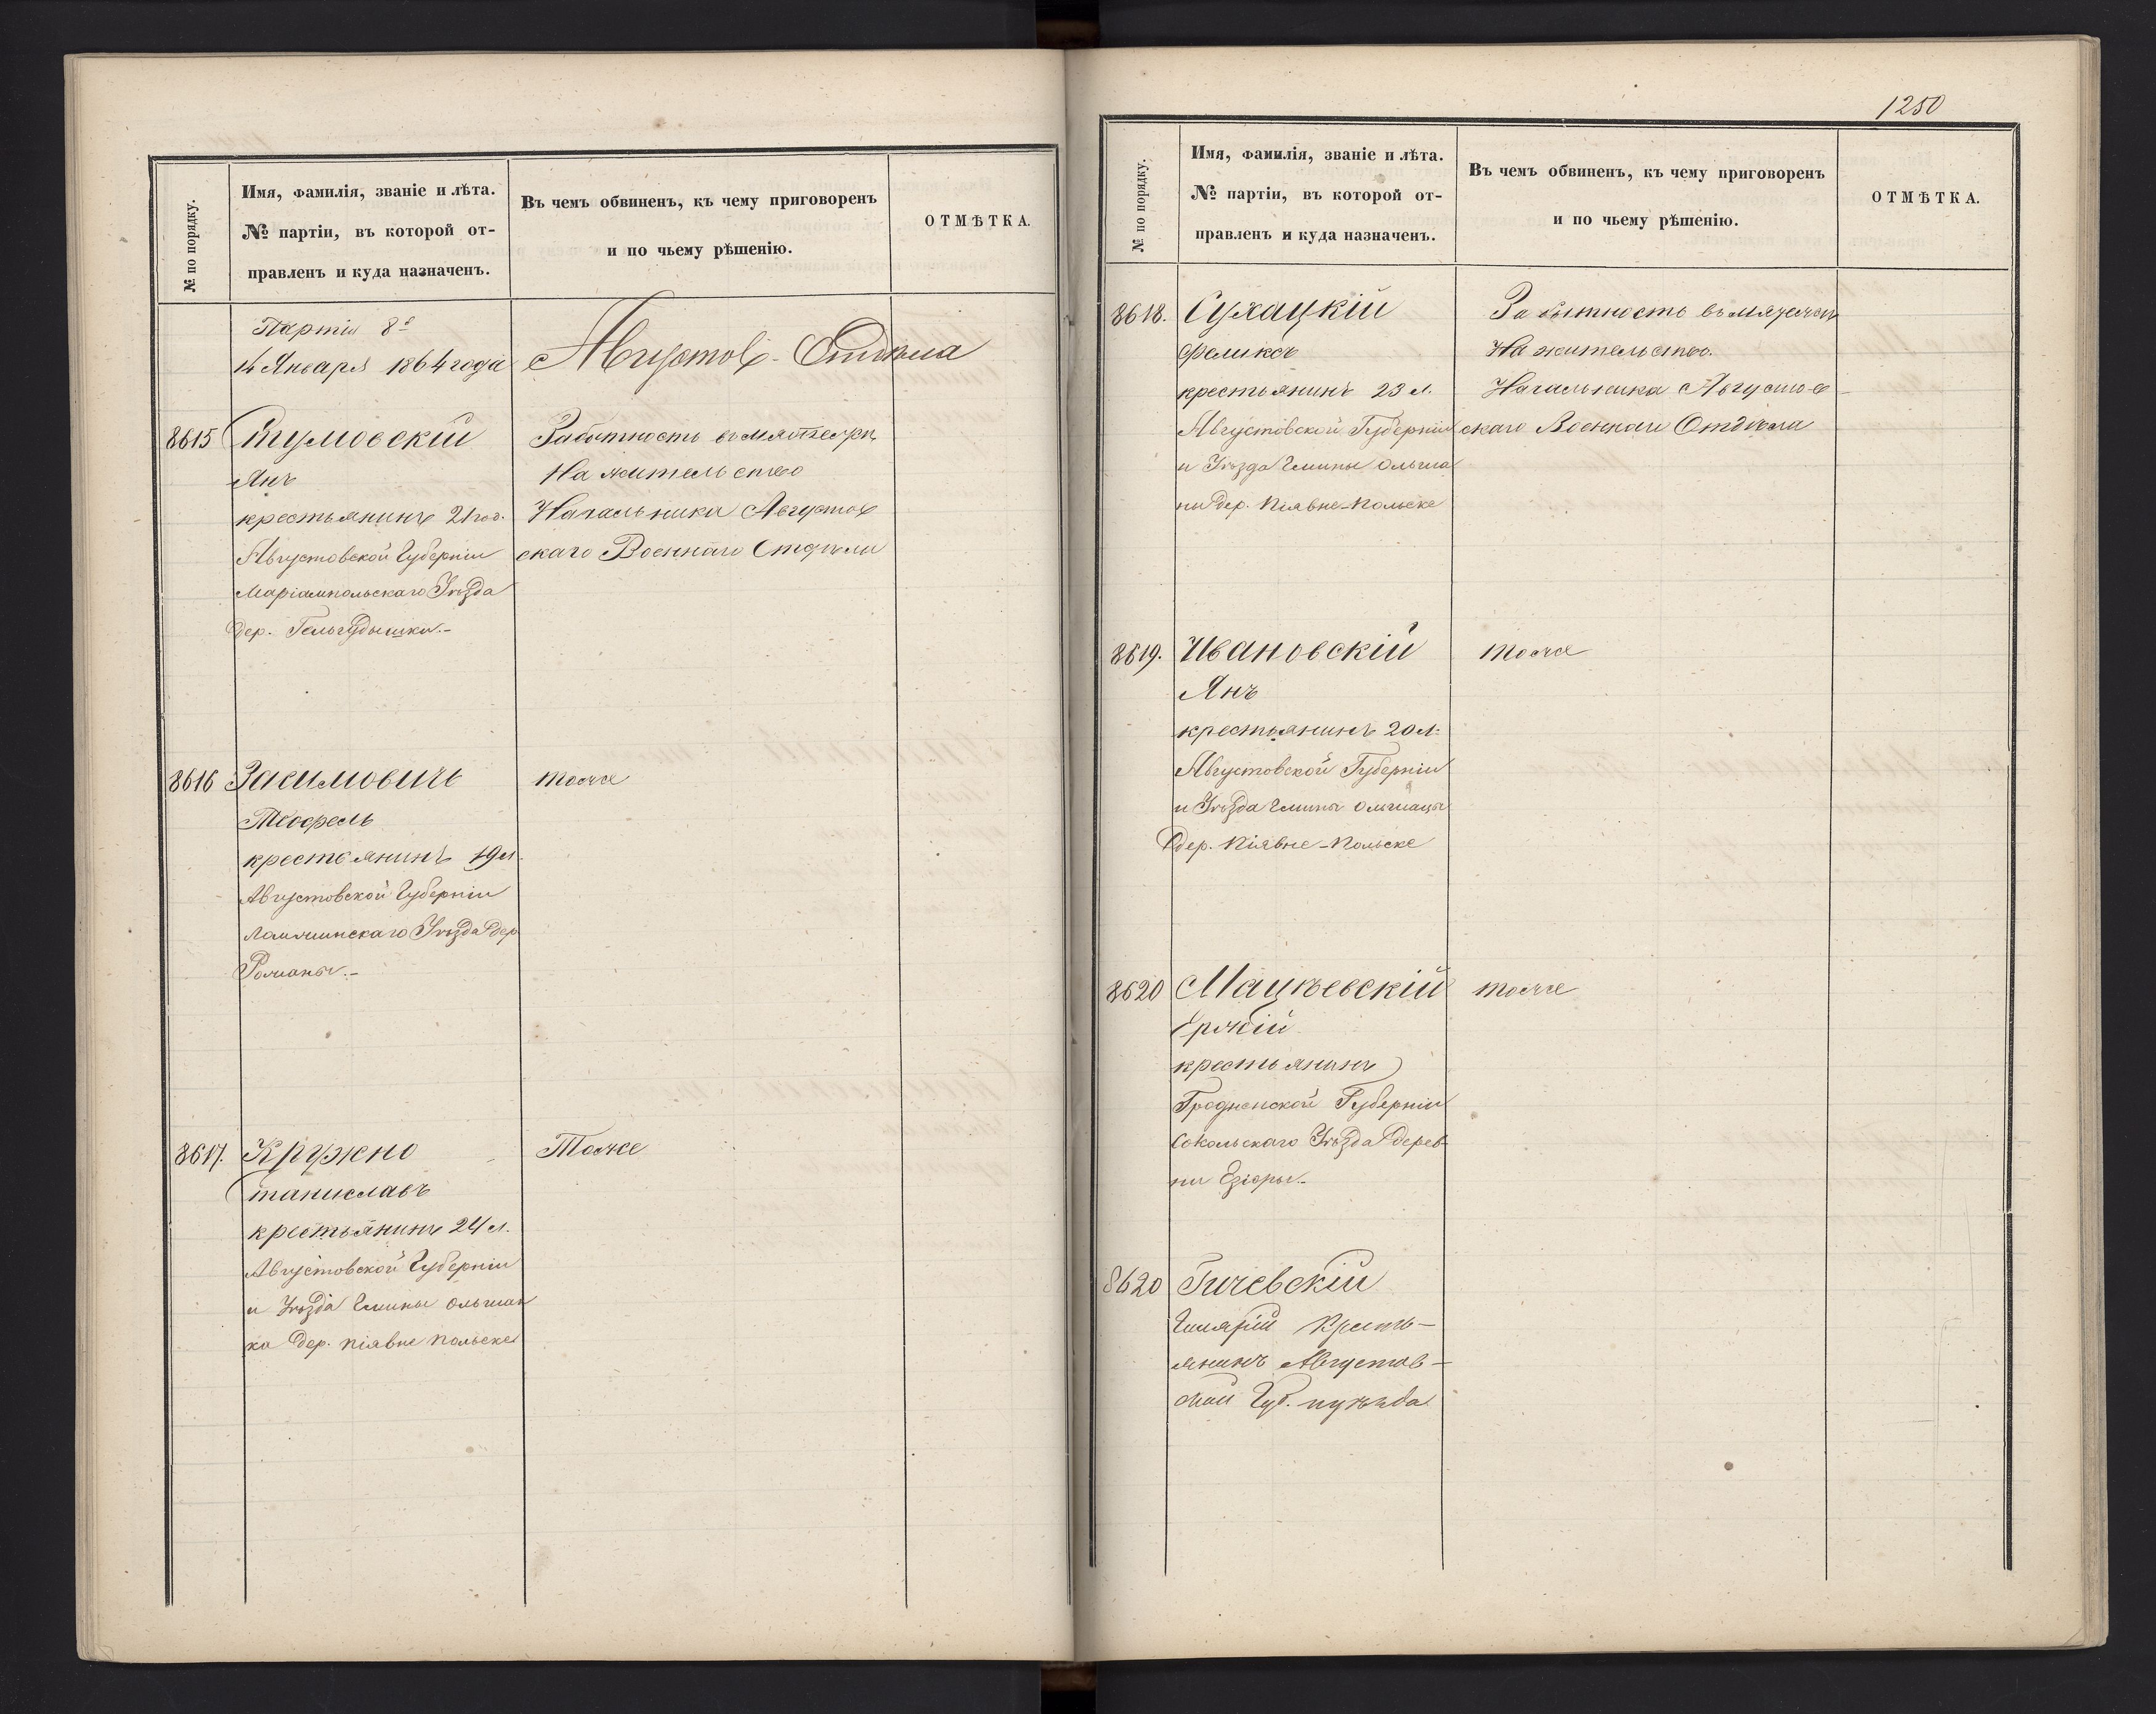 № по порядку.
Имя, фамилія, званіе и лѣта.
№ партіи, въ которой от-
правленъ и куда назначенъ.
Въ чемъ обвиненъ, къ чему приговоренъ
и по чьему рѣшенію.
ОТМѢТКА.
Партія 8я
14 Января 1864 года
Августов. Отдѣла
8615
Стумовскій
Янъ
крестьянинъ 21 год.
Августовской Губерніи
Маріампольскаго Уѣзда
дер. Гельгудышки.-
За бытность въ мятежѣ
На жительство
Начальника Августов
скаго Военнаго Отдѣла
8616
Засимовичъ
Теофель
крестьянинъ 19 л.
Августовской Губерніи
Ломжинскаго Уѣзда дер
Романы.-
тоже
8617.
Кружно
Станиславъ
крестьянинъ 24 л.
Августовской Губерніи
и Уѣзда Гмины Ольшан
ка дер. Піявне Польске
Тоже
1250
№ по порядку.
Имя, фамилія, званіе и лѣта.
№ партіи, въ которой от-
правленъ и куда назначенъ.
Въ чемъ обвиненъ, къ чему приговоренъ
и по чьему рѣшенію.
ОТМѢТКА.
8618.
Сухацкій
Феликсъ
крестьянинъ 23 л.
Августовской Губерніи
и Уѣзда Гмины Ольша
ны дер. Піявне-Польске
За бытность въ мятежѣ
На жительство.
Начальника Августов-
скаго Военнаго Отдѣла
8619.
Ивановскій
Янъ
крестьянинъ 20 л.
Августовской Губерніи
и Уѣзда Гмины
дер. Піявне-Польске
тоже
8620
Мацкевскій
Ержій
крестьянинъ
Гродненской Губерніи
Сокольскаго Уѣзда дерев-
ни Езіоры.
тоже
8620
Гичевскій
Гиларій Кресть-
янинъ Августов-
ской Губ. и уѣзда